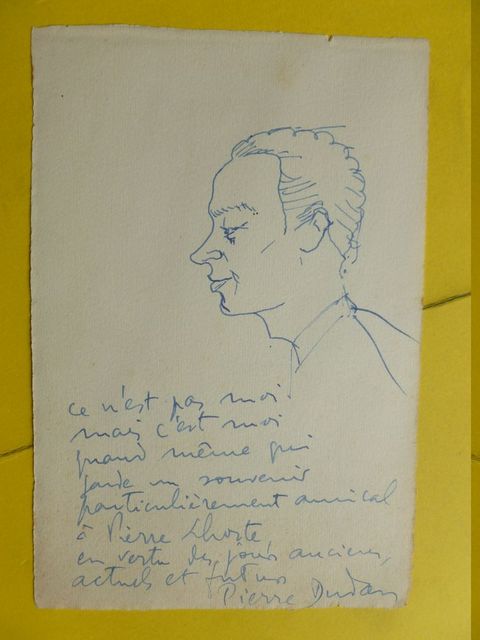 ce n'est pas moi
mais c'est moi
quand même qui
garde un souvenir
particulièrement amical
à Pierre Lhoste
en vertu des jours anciens,
actuels et futurs
Pierre Dudan